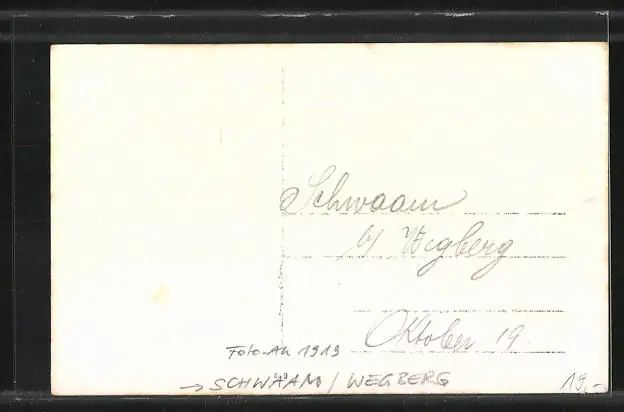 Schwaam
b/ Wegberg
Oktober 19.
Foto-AK 1919
→ SCHWAAM / WEGBERG
19,-